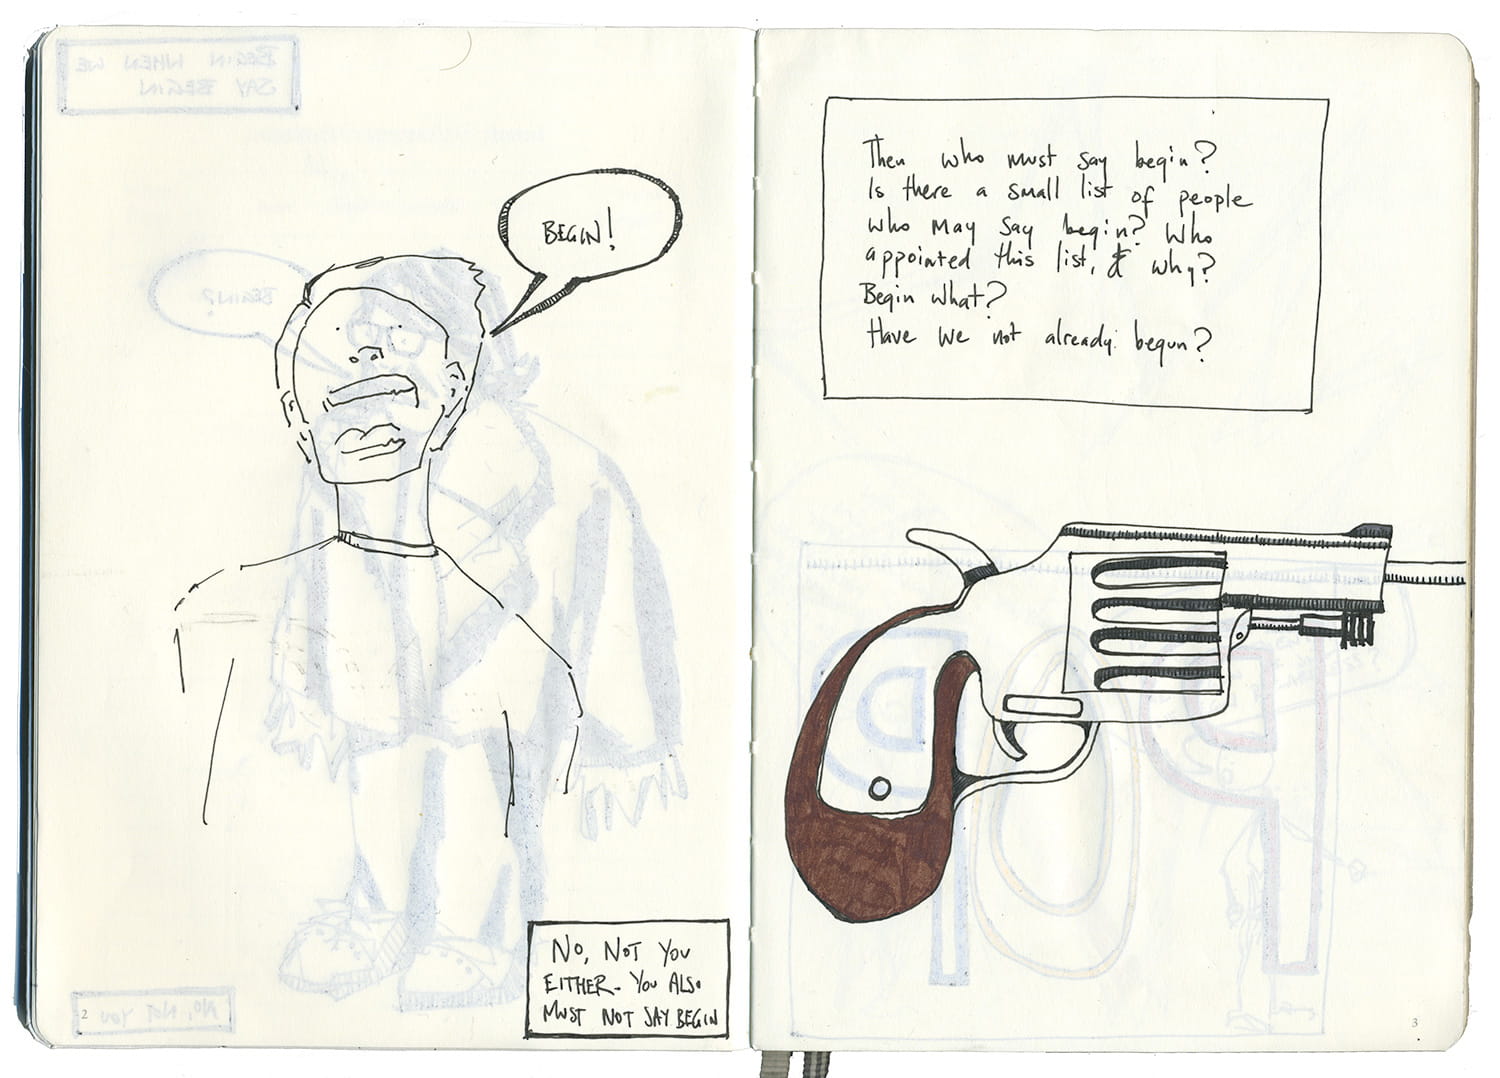 BEGIN WHEN WE
SAY BEGIN
BEGIN!
BEGIN?
NO, NOT YOU
EITHER. YOU ALSO
MUST NOT SAY BEGIN
NO, NOT YOU
2
Then who must say begin?
Is there a small list of people
who may say begin? Who
appointed this list, & why?
Begin what?
Have we not already begun?
POP
3